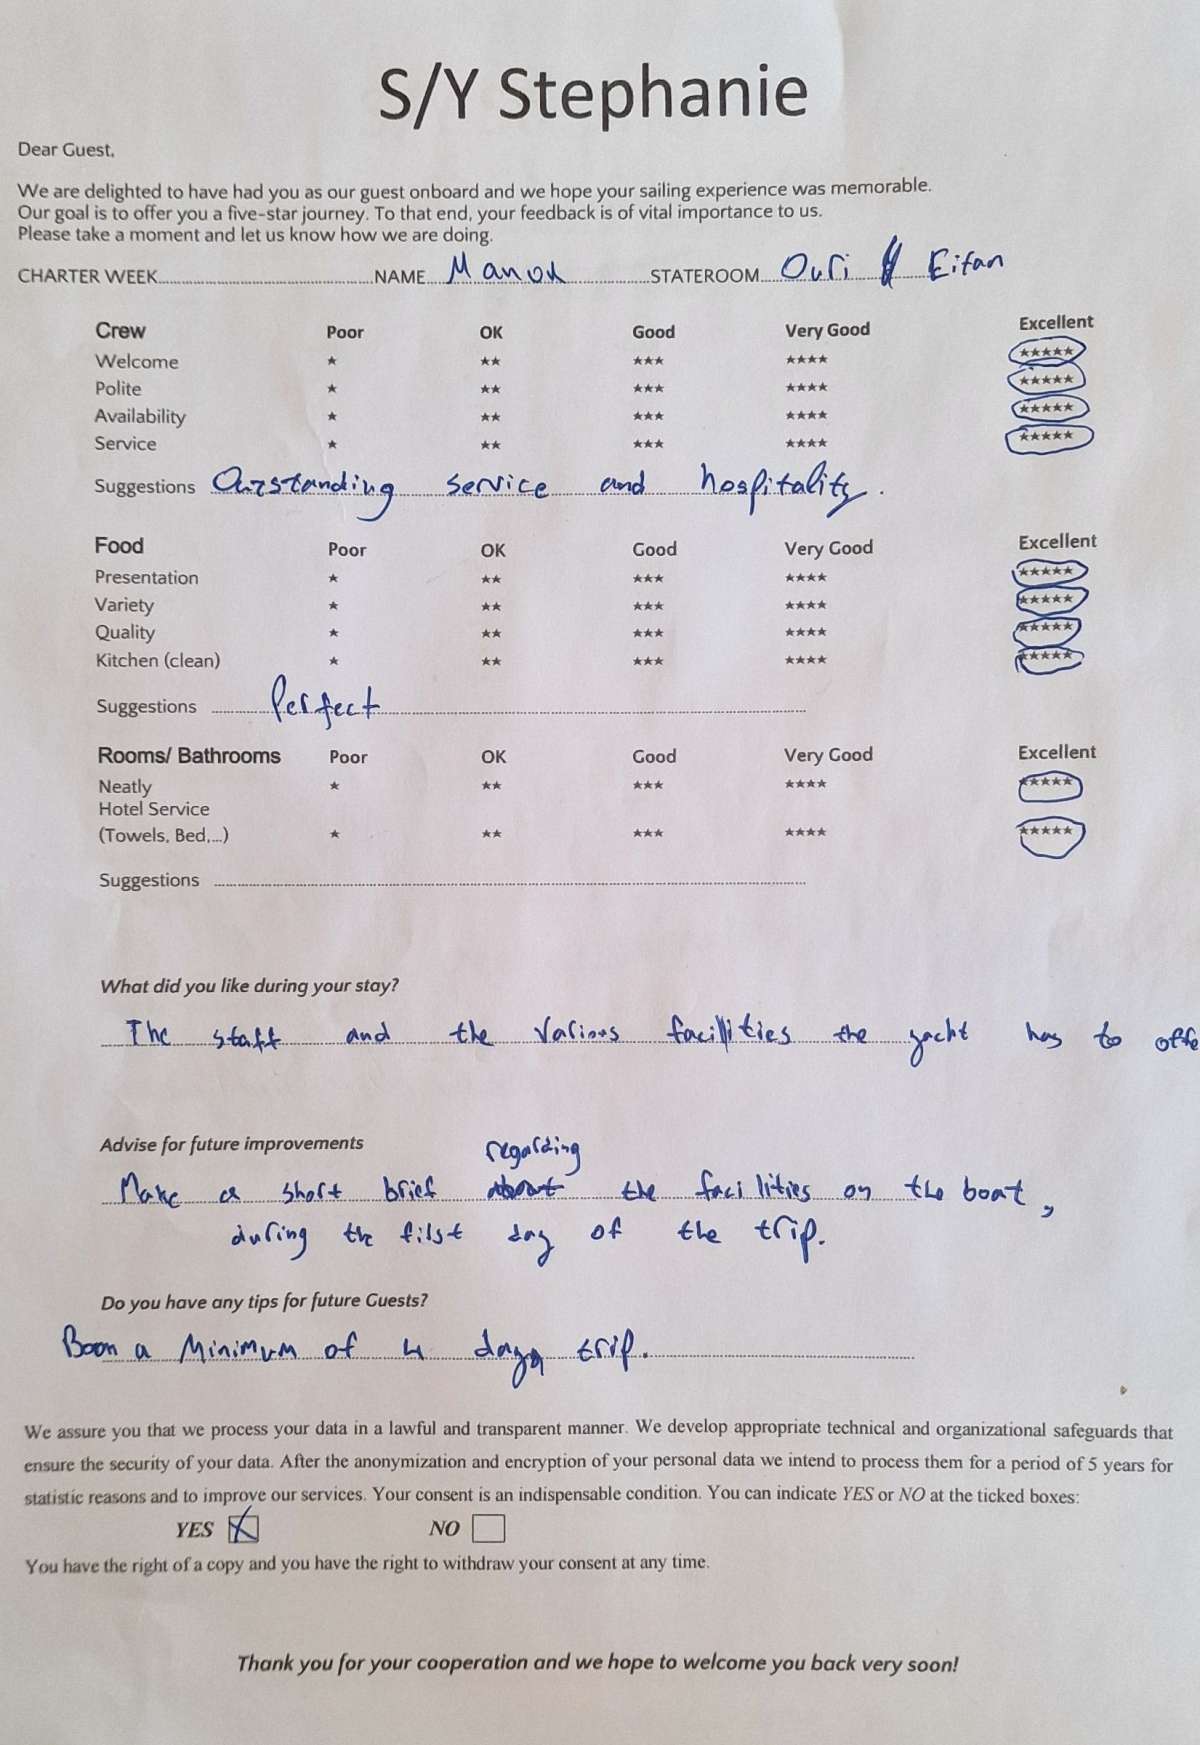 S/Y Stephanie
Dear Guest,
We are delighted to have had you as our guest onboard and we hope your sailing experience was memorable.
Our goal is to offer you a five-star journey. To that end, your feedback is of vital importance to us.
Please take a moment and let us know how we are doing.
CHARTER WEEK NAME STATEROOM Ouri Eitan
Crew Poor OK Good Very Good Excellent
Welcome ★ ★★ ★★★ ★★★★ ★★★★★
Polite ★ ★★ ★★★ ★★★★ ★★★★★
Availability ★ ★★ ★★★ ★★★★ ★★★★★
Service ★ ★★ ★★★ ★★★★ ★★★★★
Suggestions Outstanding service and hospitality.
Food Poor OK Good Very Good Excellent
Presentation ★ ★★ ★★★ ★★★★ ★★★★★
Variety ★ ★★ ★★★ ★★★★ ★★★★★
Quality ★ ★★ ★★★ ★★★★ ★★★★★
Kitchen (clean) ★ ★★ ★★★ ★★★★ ★★★★★
Suggestions Perfect
Rooms/ Bathrooms Poor OK Good Very Good Excellent
Neatly ★ ★★ ★★★ ★★★★ ★★★★★
Hotel Service
(Towels, Bed,...) ★ ★★ ★★★ ★★★★ ★★★★★
Suggestions
What did you like during your stay?
The staff and the various facillities the yacht has to offe
Advise for future improvements
Make a short brief regarding the facilities on the boat,
during the first day of the trip.
Do you have any tips for future Guests?
a Minimum of 4 trip.
We assure you that we process your data in a lawful and transparent manner. We develop appropriate technical and organizational safeguards that
ensure the security of your data. After the anonymization and encryption of your personal data we intend to process them for a period of 5 years for
statistic reasons and to improve our services. Your consent is an indispensable condition. You can indicate YES or NO at the ticked boxes:
YES NO
You have the right of a copy and you have the right to withdraw your consent at any time.
Thank you for your cooperation and we hope to welcome you back very soon!